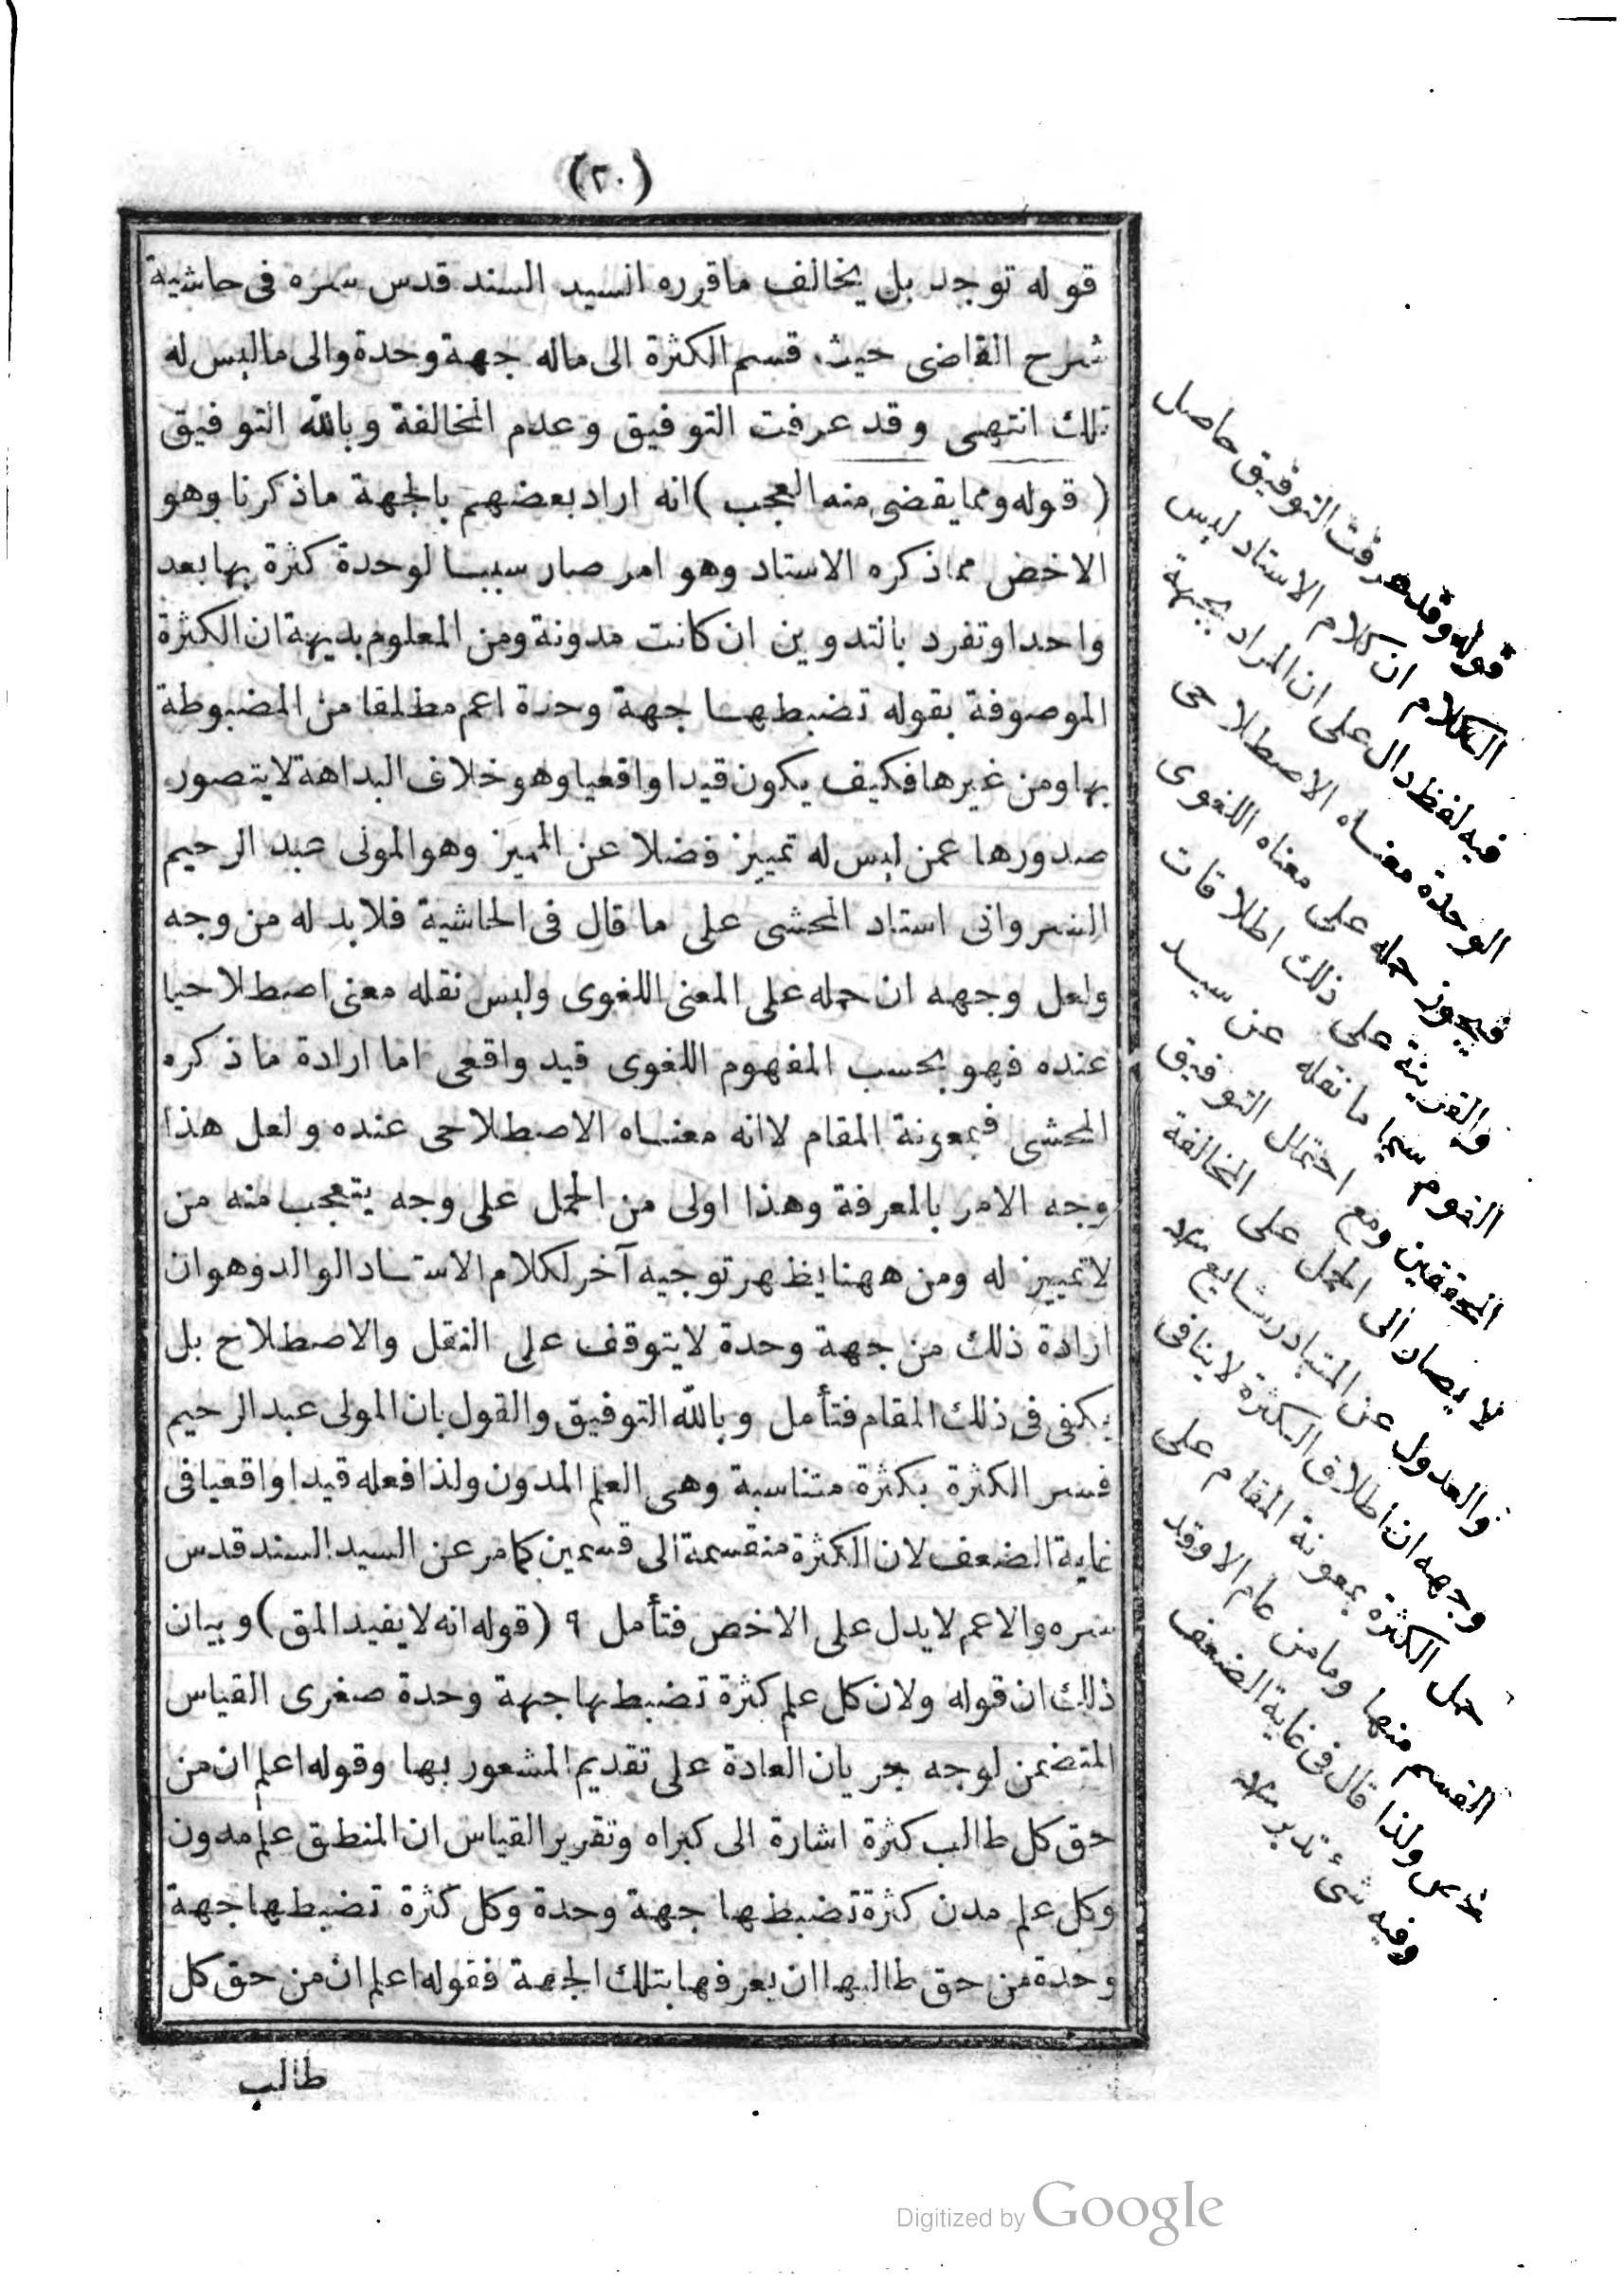 (٢٠)
قوله توجد بل يخالف ماقرره السيد السند قدس سره فى حاشية
شرح القاضى حيث قسم الكثرة الى ماله جهة وحدة والى ماليس له
تلك انتهى وقد عرفت التوفيق وعدم المخالفة وبالله التوفيق
( قوله ومما يقضى منه العجب ) انه اراد بعضهم بالجهة ماذكرنا وهو
الاخص مماذكره الاستاد وهو امر صار سببا لوحدة كثرة بها بعد
واحدا وتفرد بالتدوين ان كانت مدونة ومن المعلوم بديهة ان الكثرة
الموصوفة بقوله تضبطها جهة وحدة اعم مطلقا من المضبوطة
بها ومن غيرها فكيف يكون قيدا واقعيا وهو خلاف البداهة لا يتصور
صدورها عمن ليس له تمييز فضلا عن المميز وهو المولى عبد الرحيم
الشروانى استاد المحشى على ما قال فى الحاشية فلابد له من وجه
ولعل وجهه ان حمله على المعنى اللغوى وليس نقله معنى اصطلاحيا
عنده فهو بحسب المفهوم اللغوى قيد واقعى اما ارادة ما ذكره
المحشى فبمعونة المقام لاانه معناه الاصطلاحى عنده ولعل هذا
وجه الامر بالمعرفة وهذا اولى من الحمل على وجه يتعجب منه من
لا تمييز له ومن ههنا يظهر توجيه آخر لكلام الاستاد الوالد وهو ان
ارادة ذلك من جهة وحدة لا يتوقف على النقل والاصطلاح بل
يكفى فى ذلك المقام فتأمل وبالله التوفيق والقول بان المولى عبد الرحيم
فسر الكثرة بكثرة متناسبة وهى العلم المدون ولذا فعله قيدا واقعيا فى
غاية الضعف لان الكثرة منقسمة الى قسمين كمامر عن السيد السند قدس
سره والاعم لا يدل على الاخص فتأمل ٩ ( قوله انه لا يفيد المق ) وبيان
ذلك ان قوله ولان كل علم كثرة تضبطها جهة وحدة صغرى القياس
المتضمن لوجه جريان العادة على تقديم المشعور بها وقوله اعلم ان من
حق كل طالب كثرة اشارة الى كبراه وتقرير القياس ان المنطق علم مدون
وكل علم مدن كثرة تضبطها جهة وحدة وكل كثرة تضبطها جهة
وحدة من حق طالبها ان يعرفها بتلك الجهة فقوله اعلم ان من حق كل
طالب
قوله وقد عرفت التوفيق حاصل
الكلام ان كلام الاستاد ليس
فيه لفظ دال على ان المراد بجهة
الوحدة معناه الاصطلاحى
فيجوز حمله على معناه اللغوى
والقرينة على ذلك اطلاقات
القوم سيما ما نقله عن سيد
المحققين ومع احتمال التوفيق
لا يصار الى الحمل على المخالفة
والعدول عن المتبادر شايع منه
وجهه ان اطلاق الكثرة لا ينافى
حمل الكثرة بمعونة المقام على
القسم منها ومامن عام الا وقد
خص ولذا قال فى غاية الضعف
وفيه شئ تدبر منه
Digitized by Google